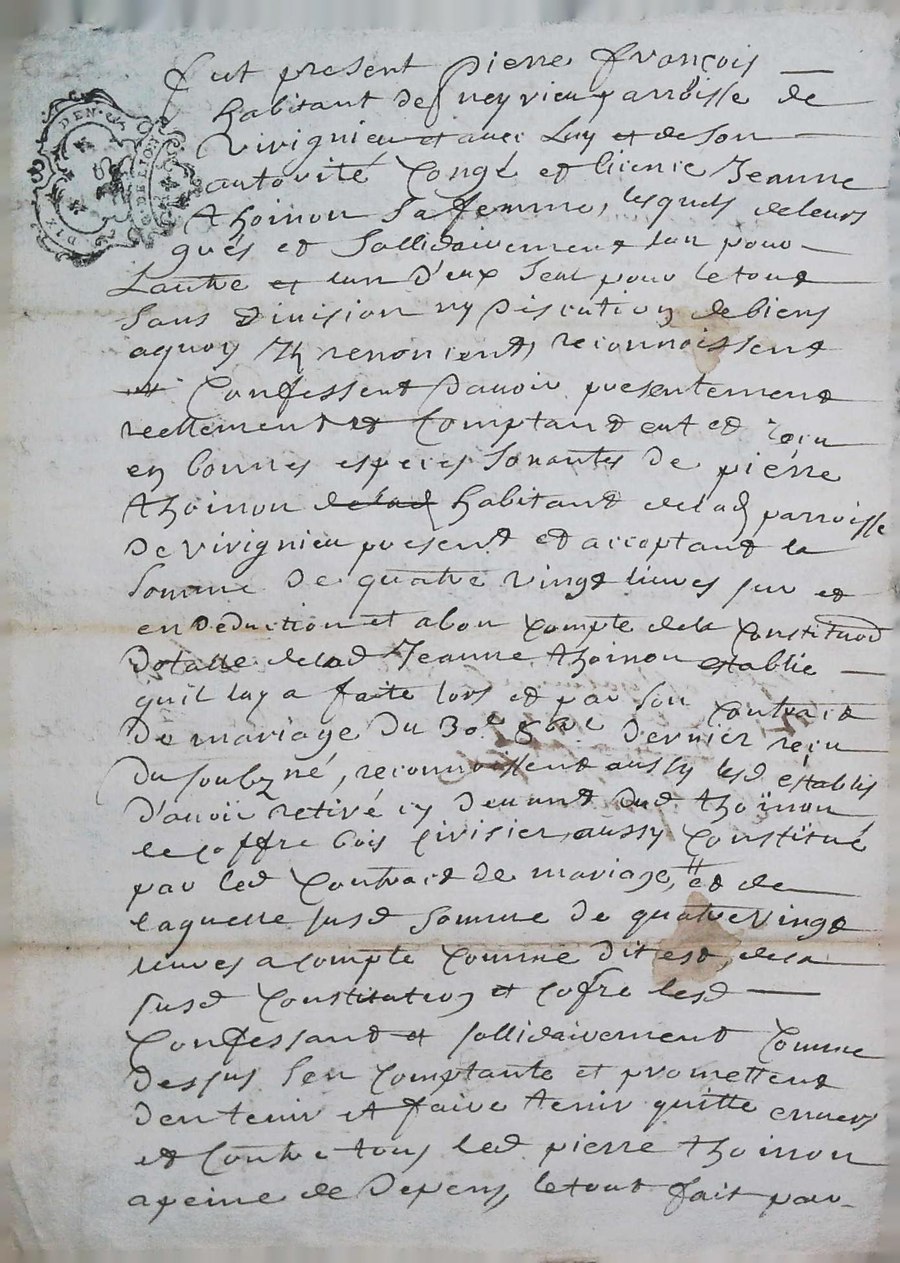 DIX DEN. G. DE LION
fut present pierre françois
habitant de neyrieu parroisse de
Virignieu et avec luy et de son
autorité Congé et licence Jeanne
thoinon sa femme, lesquels de leurs
grés et sollidairement lun pour
Lautre et lun d'eux seul pour le tout
sans Division ny Discution de biens
aquoy Ils renoncent, reconnoissent
et Confessent Davoir presentement
reellement et Comptant eut et recu
en bonnes especes sonantes de pierre
thoinon delad habitant delad parroisse
De virignieu present et acceptant la
somme De quatre vingt livres sur et
en Deduction et abon Compte dela Constituon
Dotalle delad Jeanne thoinon establie
quil luy a faite lors et par son Contract
De mariage Du 30e 8bre Dernier reçu
Du soubzné, reconnoissent aussy lesd establis
D'avoir retiré cy Devant dud thoinon
le coffre bois cirisier aussy Constitué
par led Contract de mariage, et de
laquelle susd somme de quatre vingt
livres a compte Comme Dit est, dela
susd Constitution et cofre lesd
Confessant et sollidairement Comme
Dessus sen Comptante et promettent
Den tenir et faire tenir quitte envers
et Contre tous led pierre thoinon
a peine de Depens, le tout fait par